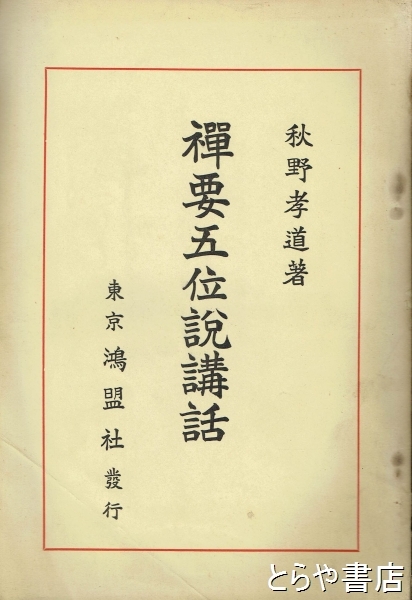 秋野孝道著
禪要五位說講話
東京 鴻盟社發行
とらや書店